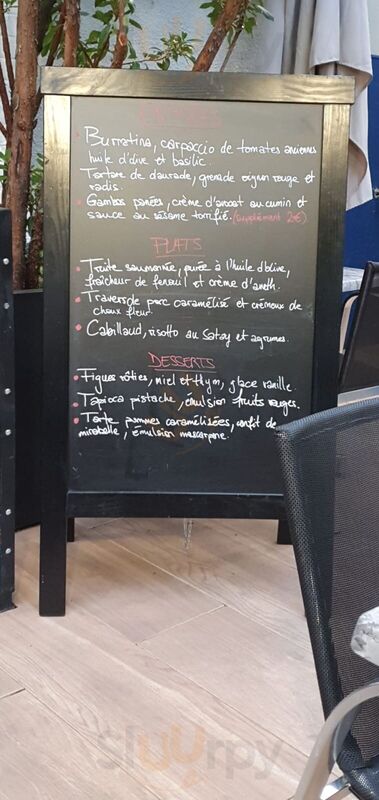 ENTRÉES
Burratina, carpaccio de tomates anciennes
huile d'olive et basilic.
Tartare de daurade, grenade oignon rouge et
radis.
Gambas panées, crème d'avocat au cumin et
sauce au sésame torréfié. (supplément 2€)
PLATS
Truite saumonée, purée à l'huile d'olive,
fraîcheur de fenouil et crème d'aneth.
Travers de porc caramélisé et crémeux de
choux fleur
Cabillaud, risotto au Satay et agrumes.
DESSERTS
Figues rôties, miel et thym, glace vanille.
Tapioca pistache, émulsion fruits rouges.
Tarte pommes caramélisées, confit de
mirabelle, émulsion mascarpone.
Sluurpy